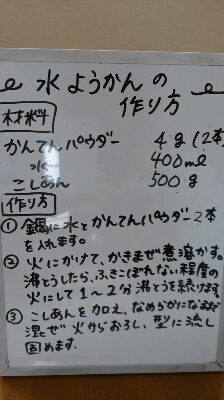 水ようかんの
作り方
材料
かんてんパウダー 4g(2本
水 400ml
こしあん 500g
作り方
① 鍋に水とかんてんパウダー2本
を入れます。
② 火にかけて、かきまぜ煮溶かす。
沸とうしたら、ふきこぼれない程度の
火にして1〜2分沸とうを続けます
③ こしあんを加え、なめらかになるまで
混ぜ火からおろし、型に流し
固めます。